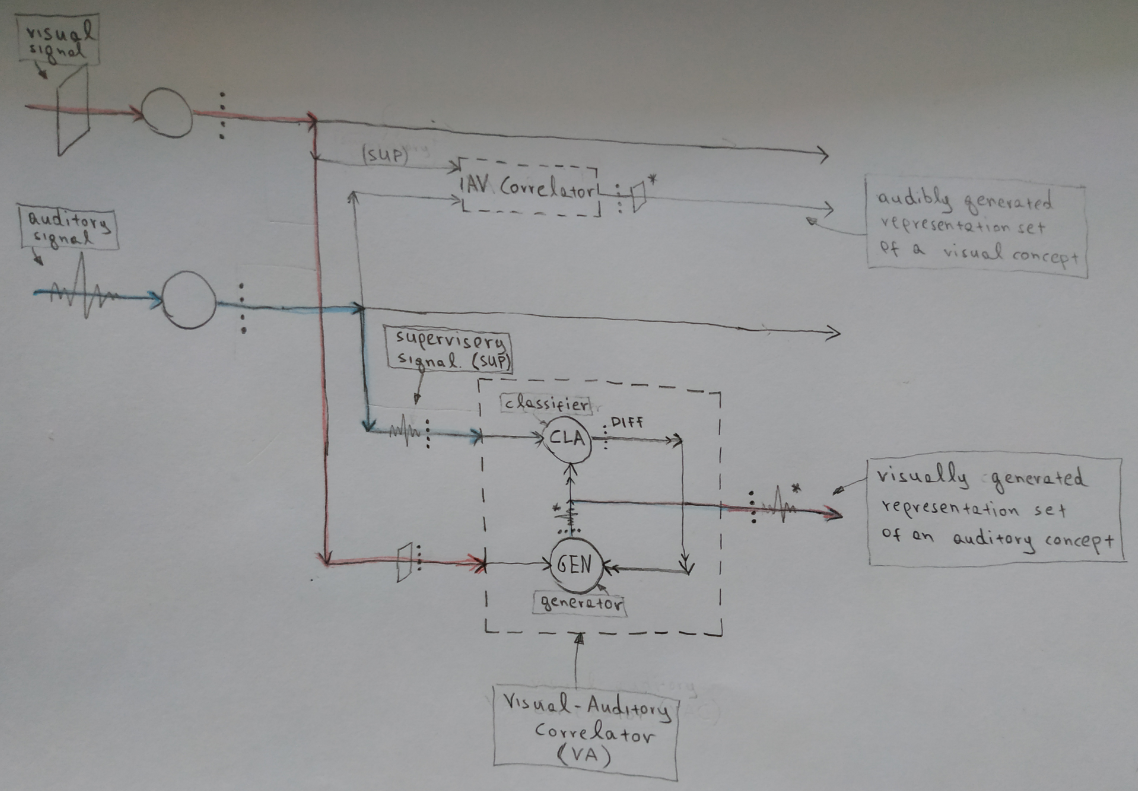 visual
signal
(SUP)
AV Correlator
*
audibly generated
representation set
of a visual concept
auditory
signal
supervisory
signal. (SUP)
classifier
CLA
DIFF
*
*
visually generated
representation set
of an auditory concept
GEN
generator
Visual-Auditory
Correlator
(VA)